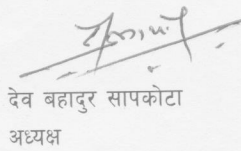 देव बहादुर सापकोटा
अध्यक्ष